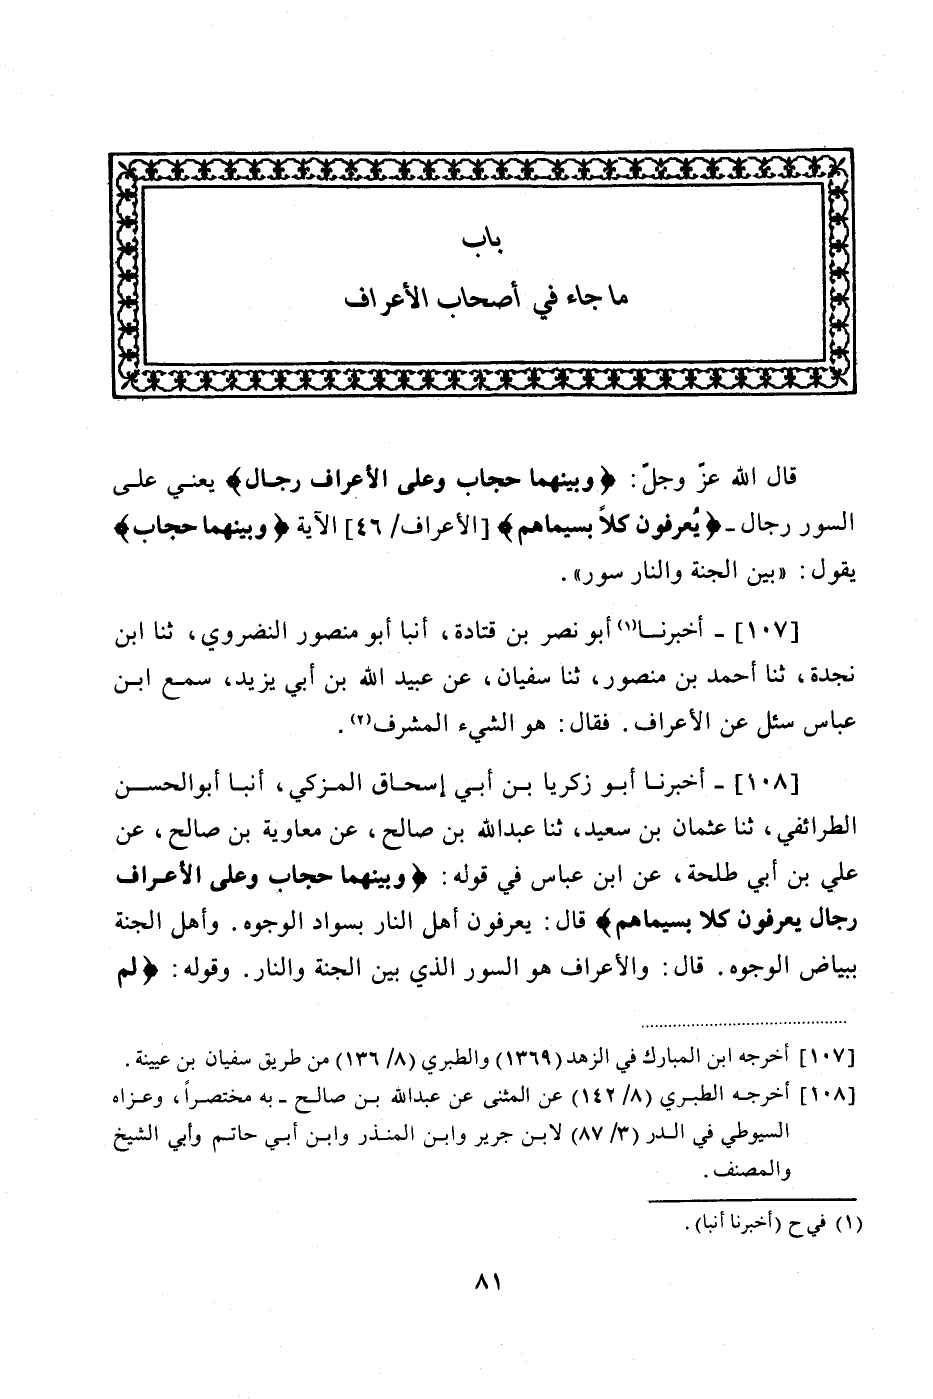 باب
ما جاء في أصحاب الأعراف
قال الله عزّ وجلّ: ﴿وبينهما حجاب وعلى الأعراف رجال﴾ يعني على
السور رجال ـ ﴿يُعرفون كلاً بسيماهم﴾ [الأعراف/ ٤٦] الآية ﴿وبينهما حجاب﴾
يقول: «بين الجنة والنار سور».
[١٠٧] ـ أخبرنـا(١) أبو نصر بن قتادة، أنبا أبو منصور النضروي، ثنا ابن
نجدة، ثنا أحمد بن منصور، ثنا سفيان، عن عبيد الله بن أبي يزيد، سمع ابن
عباس سئل عن الأعراف. فقال: هو الشيء المشرف(٢).
[١٠٨] ـ أخبرنا أبو زكريا بن أبي إسحاق المزكي، أنبا أبوالحسن
الطرائفي، ثنا عثمان بن سعيد، ثنا عبدالله بن صالح، عن معاوية بن صالح، عن
علي بن أبي طلحة، عن ابن عباس في قوله: ﴿وبينهما حجاب وعلى الأعراف
رجال يعرفون كلا بسيماهم﴾ قال: يعرفون أهل النار بسواد الوجوه. وأهل الجنة
ببياض الوجوه. قال: والأعراف هو السور الذي بين الجنة والنار. وقوله: ﴿لم
[١٠٧] أخرجه ابن المبارك في الزهد (١٣٦٩) والطبري (٨/ ١٣٦) من طريق سفيان بن عيينة.
[١٠٨] أخرجه الطبري (٨/ ١٤٢) عن المثنى عن عبدالله بن صالح ـ به مختصراً، وعزاه
السيوطي في الدر (٣/ ٨٧) لابن جرير وابن المنذر وابن أبي حاتم وأبي الشيخ
والمصنف.
(١) في ح (أخبرنا أنبا).
٨١